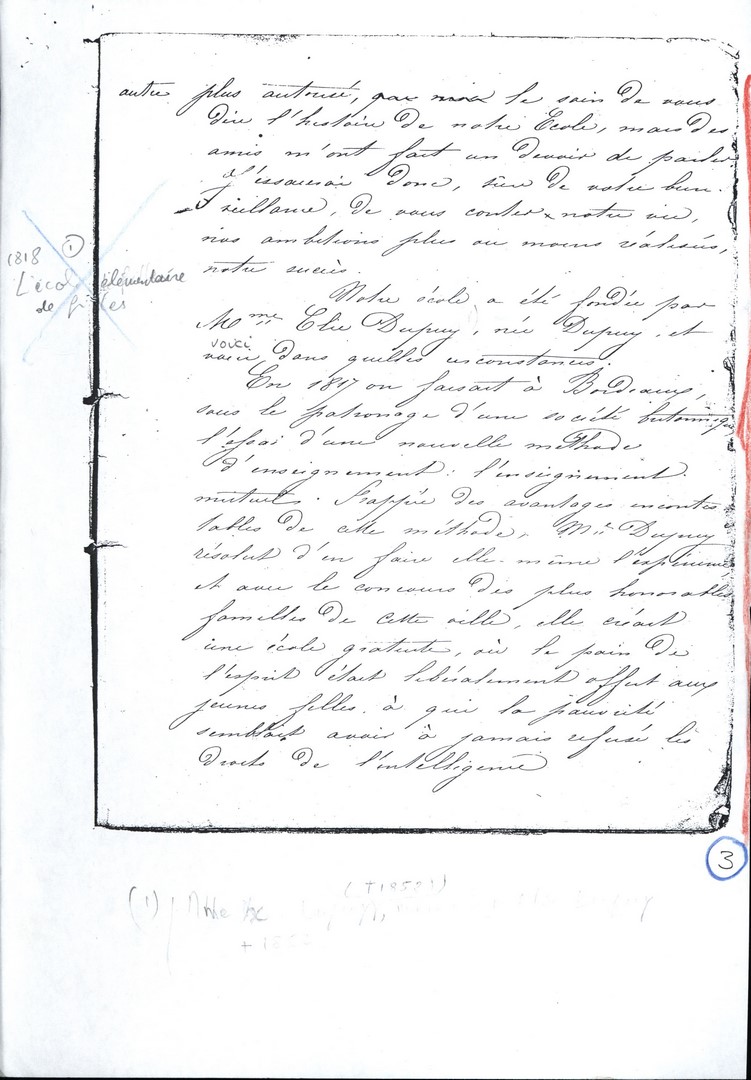 autre plus autorisé, que moi le soin de vous
dire l'histoire de notre Ecole, mais des
amis m'ont fait un devoir de parler
J'essaierai donc, sûre de votre bien-
veillance, de vous conter notre vie,
nos ambitions plus ou moins réalisées,
notre succès.
1818 (1)
L'école élémentaire
de filles
Notre école a été fondée par
Mme Elie Dupuy, née Dupuy, et
voici
voici dans quelles circonstances.
En 1817 on faisait à Bordeaux,
sous le patronage d'une société
l'essai d'une nouvelle méthode
d'enseignement : l'enseignement
mutuel. Frappée des avantages incontes
tables de cette méthode, Mlle Dupuy
résolut d'en faire elle-même l'expérience
et avec le concours des plus honorables
familles de cette ville, elle créait
une école gratuite, où le pain de
l'esprit était libéralement offert aux
jeunes filles à qui la pauvreté
semblait avoir à jamais refusé les
droits de l'intelligence
3
(1)